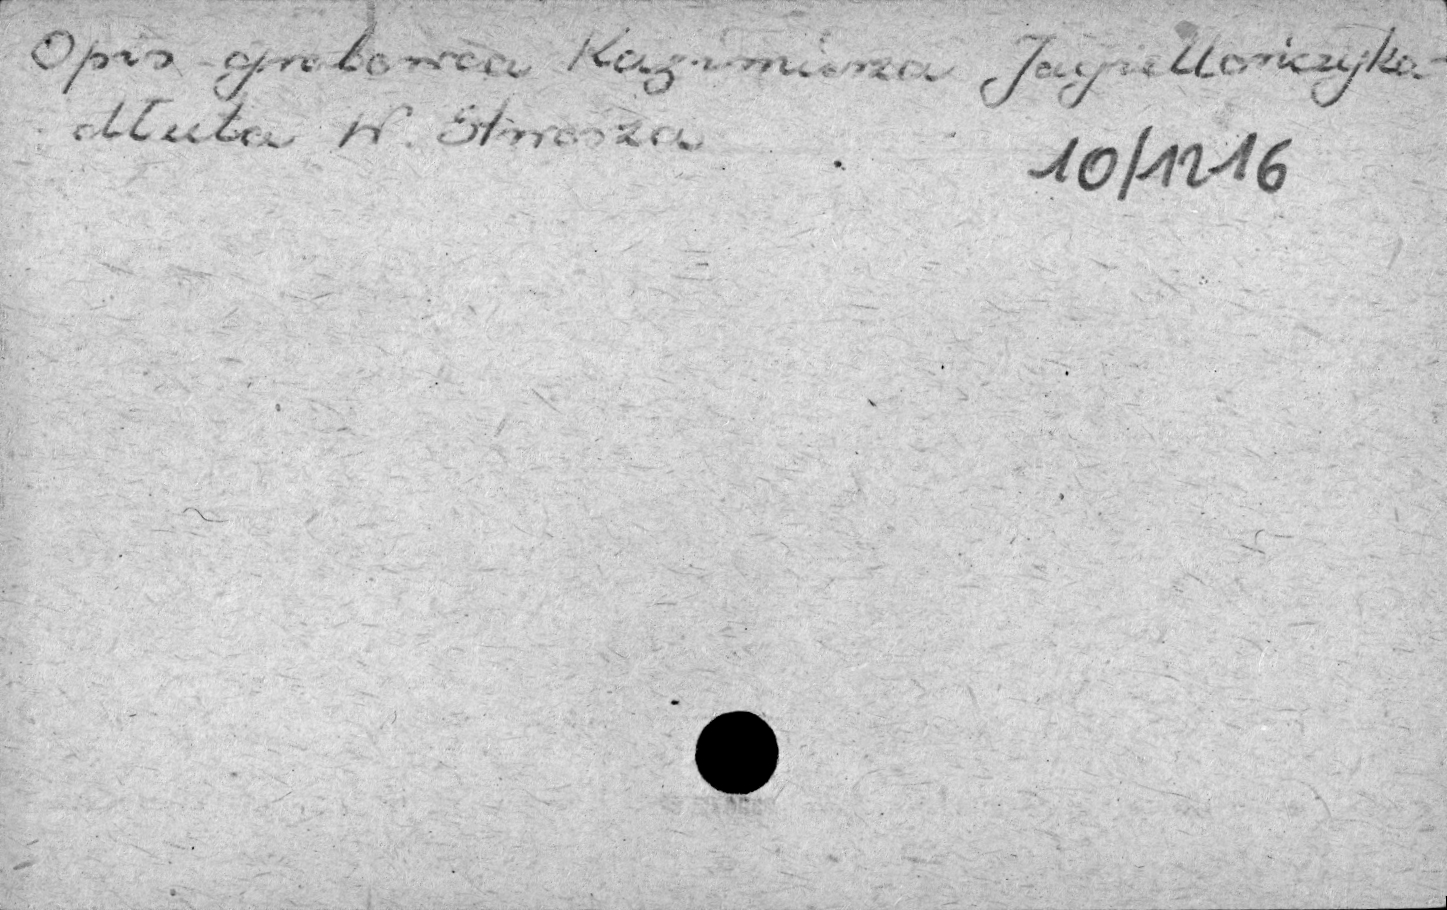 Opis grobowca Kazimierza Jagiellończyka-
dłuta W. Stwosza
10/1216